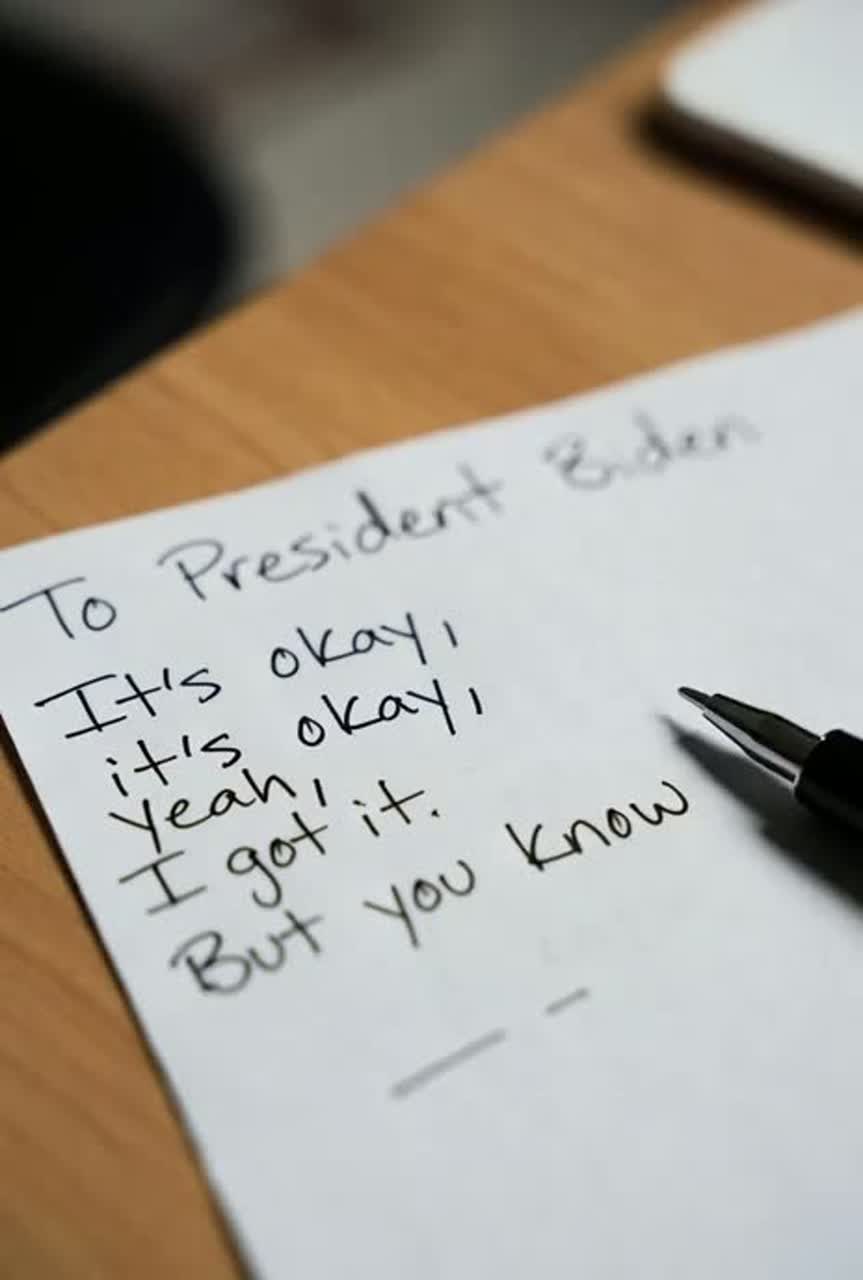 To President Biden
It's okay,
it's okay,
yeah,
I got it.
But you know
— -